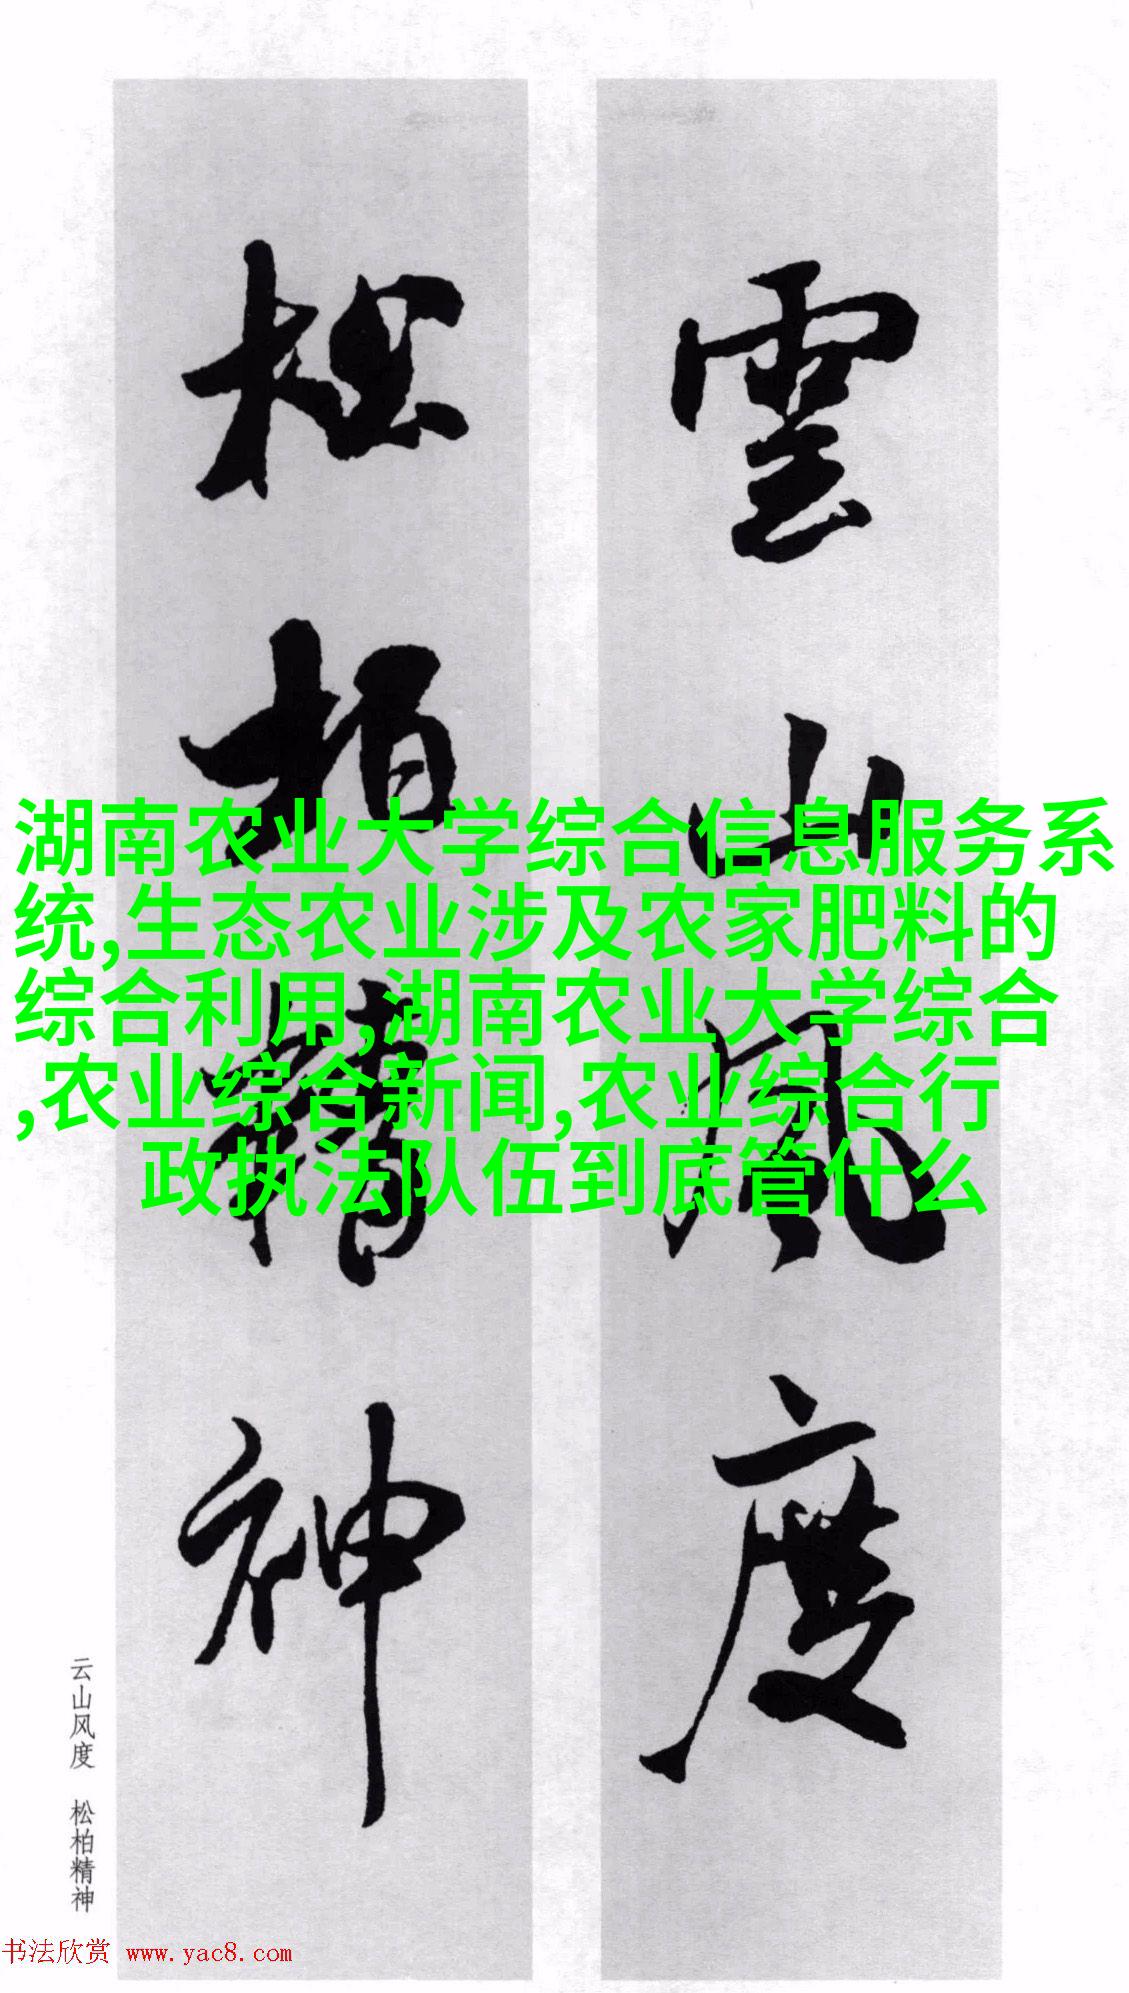 雲山風度
松柏精神
湖南农业大学综合信息服务系
统,生态农业涉及农家肥料的
综合利用,湖南农业大学综合
,农业综合新闻,农业综合行
政执法队伍到底管什么
云山风度 松柏精神
书法欣赏 www.yac8.com